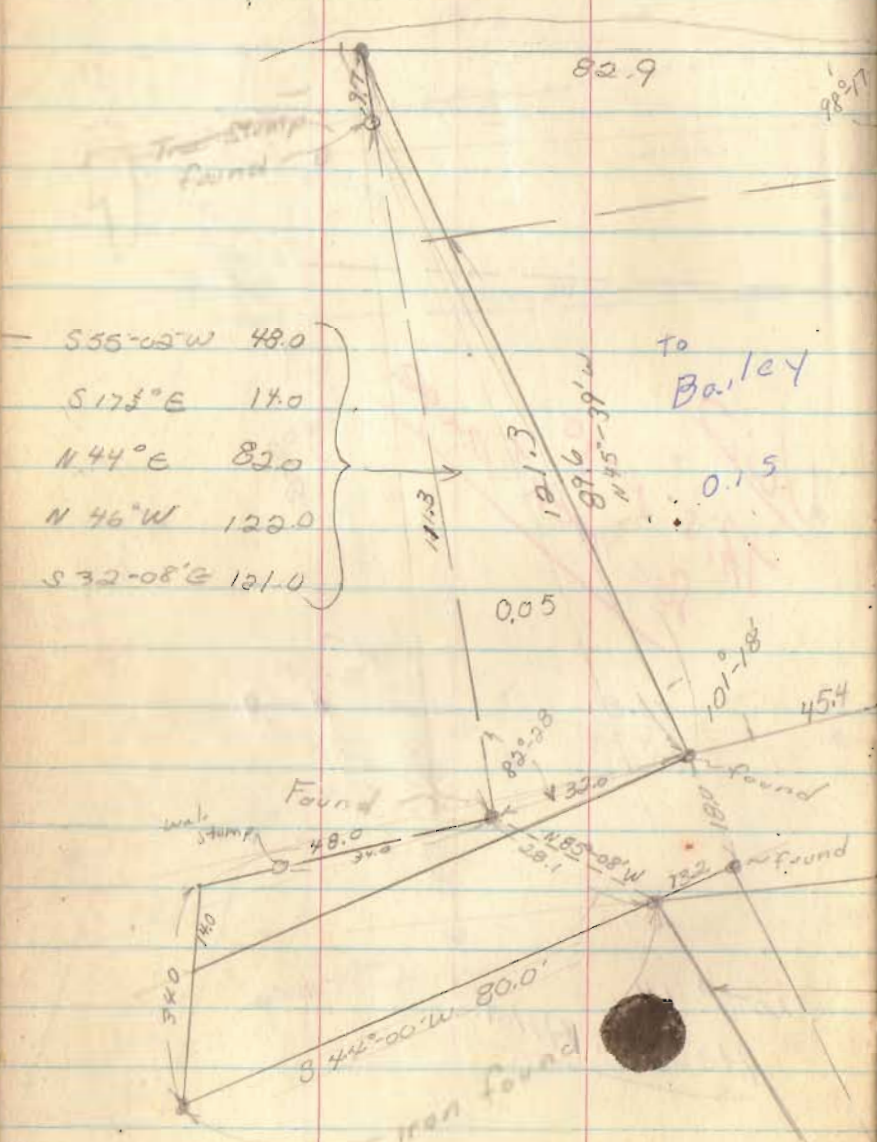 82.9
98°-17'
9.7
Tree Stump
found
S 55°-02'-W 48.0
S 17½°E 14.0
N 44°E 82.0
N 46°W 122.0
S 32-08'E 121.0
111.3
121.3
89.6
N 45°-39' W
To
Bailey
0.15
0.05
101°-18'
45.4
82°-28
32.0
found
Found
stump
48.0
34.0
N 85°-08' W
28.1
18.0
13.2
found
14.0
34.0
S 44°-00' W 80.0'
iron found